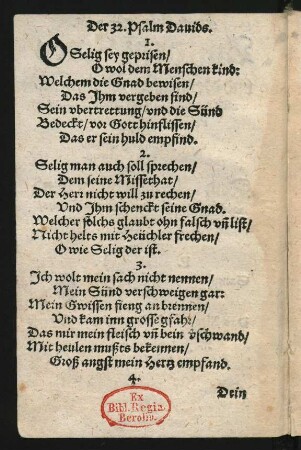 Der 32. Psalm Dauids.
1.
O Selig sey geprisen/
O wol dem Menschen kind:
Welchem die Gnad bewisen/
Das Ihm vergeben sind/
Sein vbertrettung/ vnd die Sünd
Bedeckt/ vor Gott hinflissen/
Das er sein huld empfind.
2.
Selig man auch soll sprechen/
Dem seine Missethat/
Der Herr nicht will zu rechen/
Vnd Ihm schenckt seine Gnad.
Welcher sölchs glaubt ohn falsch vñ list/
Nicht helts mit Heüchler frechen/
O wie Selig der ist.
3.
Ich wolt mein sach nicht nennen/
Mein Sünd verschweigen gar:
Mein Gwissen fieng an brennen/
Vnd kam inn grosse gfahr/
Das mir mein fleisch vñ bein v̈schwand/
Mit heulen mußts bekennen/
Groß angst mein Hertz empfand.
4.
Dein
Ex
Bibl. Regia
Berolin.